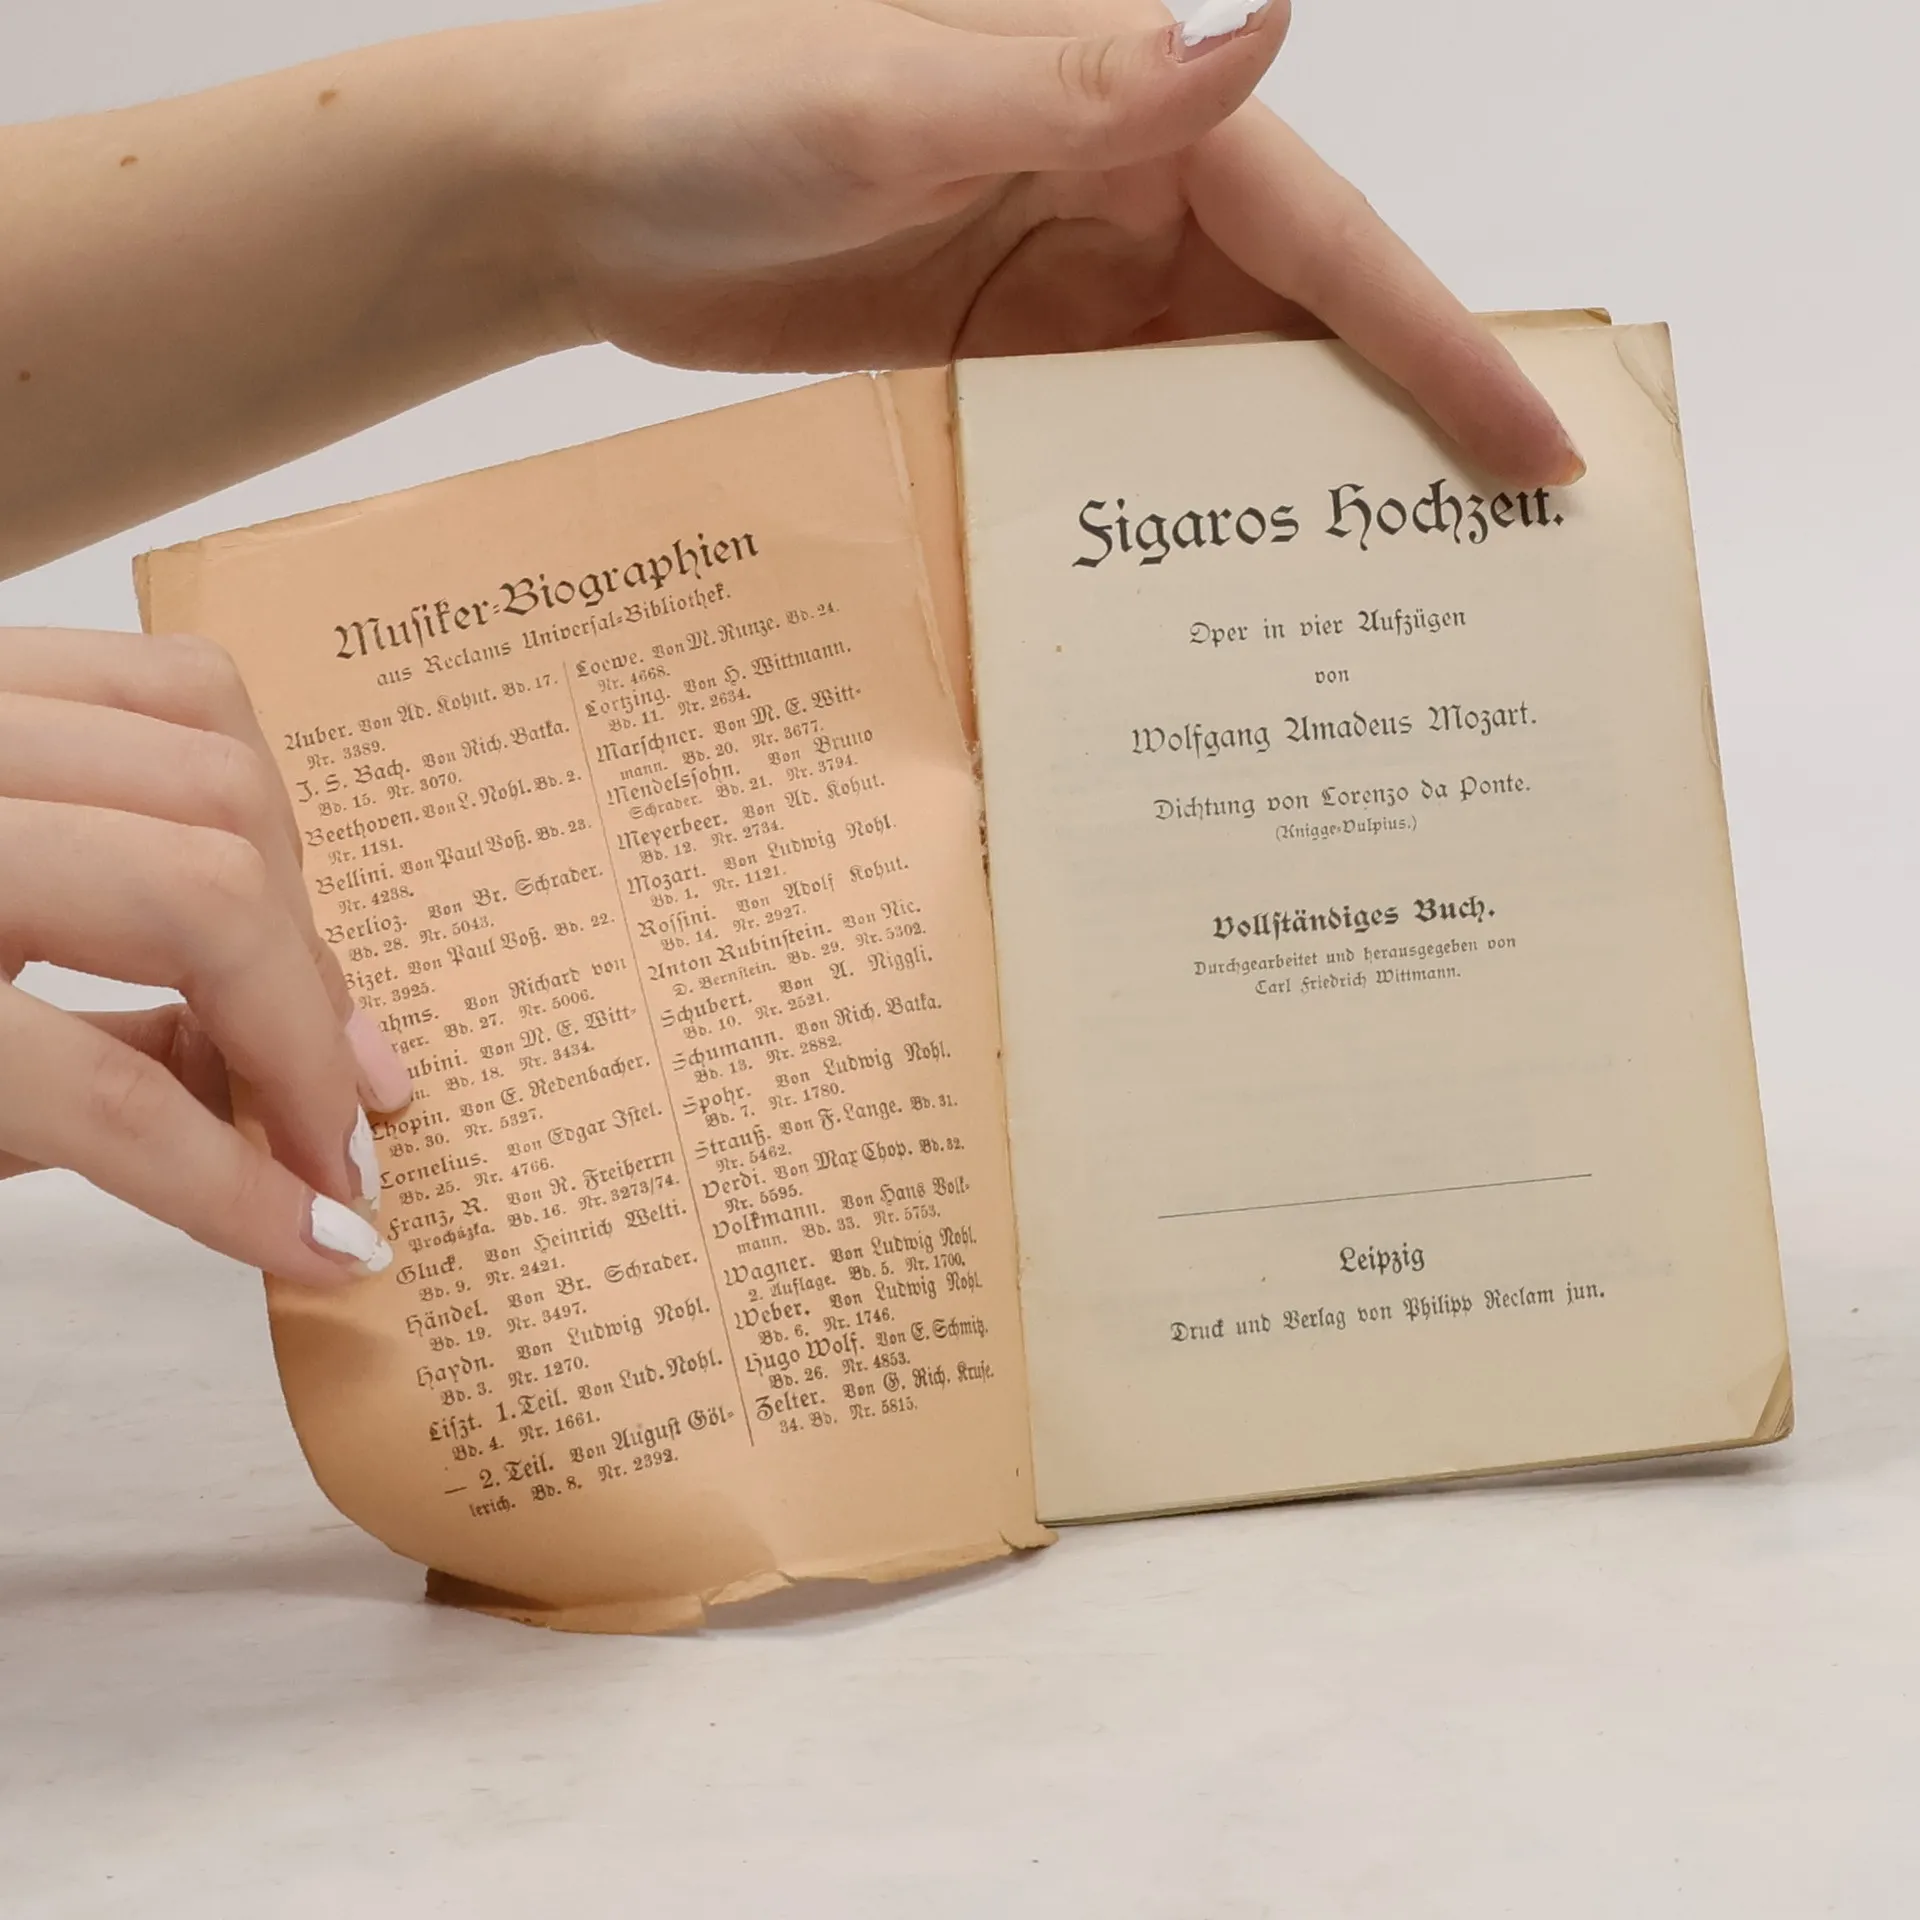 Musiker-Biographien
aus Reclams Universal-Bibliothek.
Auber. Von Ad. Kohut. Bd. 17.
Nr. 3389.
J. S. Bach. Von Rich. Batka.
Bd. 15. Nr. 3070.
Beethoven. Von L. Nohl. Bd. 2.
Nr. 1181.
Bellini. Von Paul Voß. Bd. 23.
Nr. 4238.
Berlioz. Von Br. Schrader.
Bd. 28. Nr. 5043.
Bizet. Von Paul Voß. Bd. 22.
Nr. 3925.
ahms. Von Richard von
rger. Bd. 27. Nr. 5006.
ubini. Von M. E. Witt-
n. Bd. 18. Nr. 3434.
Chopin. Von E. Redenbacher.
Bd. 30. Nr. 5327.
Cornelius. Von Edgar Istel.
Bd. 25. Nr. 4766.
Franz, R. Von R. Freiherrn
Procházka. Bd. 16. Nr. 3273/74.
Gluck. Von Heinrich Welti.
Bd. 9. Nr. 2421.
Händel. Von Br. Schrader.
Bd. 19. Nr. 3497.
Haydn. Von Ludwig Nohl.
Bd. 3. Nr. 1270.
Liszt. 1. Teil. Von Lud. Nohl.
Bd. 4. Nr. 1661.
— 2. Teil. Von August Göl-
lerich. Bd. 8. Nr. 2392.
Loewe. Von M. Runze. Bd. 24.
Nr. 4668.
Lortzing. Von H. Wittmann.
Bd. 11. Nr. 2634.
Marschner. Von M. E. Witt-
mann. Bd. 20. Nr. 3677.
Mendelssohn. Von Bruno
Schrader. Bd. 21. Nr. 3794.
Meyerbeer. Von Ad. Kohut.
Bd. 12. Nr. 2734.
Mozart. Von Ludwig Nohl.
Bd. 1. Nr. 1121.
Rossini. Von Adolf Kohut.
Bd. 14. Nr. 2927.
Anton Rubinstein. Von Nic.
D. Bernstein. Bd. 29. Nr. 5302.
Schubert. Von A. Niggli.
Bd. 10. Nr. 2521.
Schumann. Von Rich. Batka.
Bd. 13. Nr. 2882.
Spohr. Von Ludwig Nohl.
Bd. 7. Nr. 1780.
Strauß. Von F. Lange. Bd. 31.
Nr. 5462.
Verdi. Von Max Chop. Bd. 32.
Nr. 5595.
Volkmann. Von Hans Volk-
mann. Bd. 33. Nr. 5753.
Wagner. Von Ludwig Nohl.
2. Auflage. Bd. 5. Nr. 1700.
Weber. Von Ludwig Nohl.
Bd. 6. Nr. 1746.
Hugo Wolf. Von E. Schmitz.
Bd. 26. Nr. 4853.
Zelter. Von G. Rich. Kruse.
34. Bd. Nr. 5815.
Figaros Hochzeit.
Oper in vier Aufzügen
von
Wolfgang Amadeus Mozart.
Dichtung von Lorenzo da Ponte.
(Knigge-Vulpius.)
Vollständiges Buch.
Durchgearbeitet und herausgegeben von
Carl Friedrich Wittmann.
Leipzig
Druck und Verlag von Philipp Reclam jun.